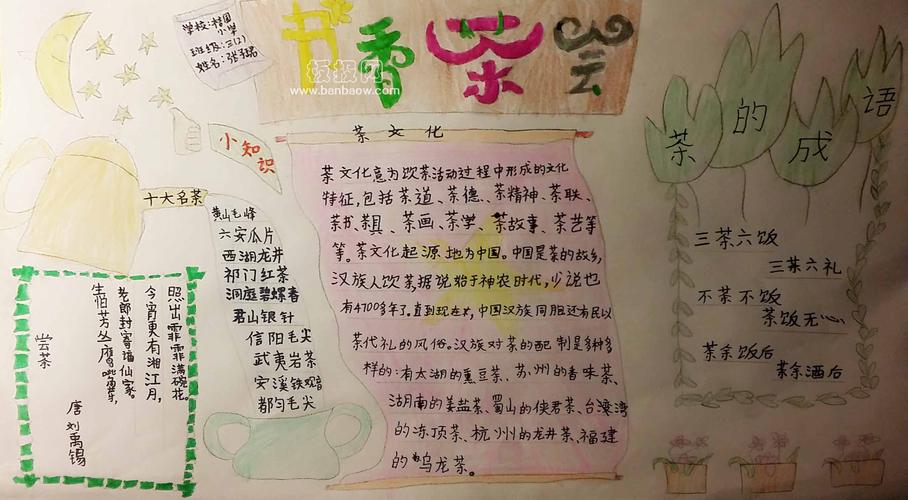 学校:桂园
小学
班级:三(2)
姓名:张
书香茶会
板报网
www.banbaow.com
小知识
十大名茶
黄山毛峰
六安瓜片
西湖龙井
祁门红茶
洞庭碧螺春
君山银针
信阳毛尖
武夷岩茶
安溪铁观音
都匀毛尖
尝茶
唐 刘禹锡
生怕芳丛鹰嘴芽,
老郎封寄谪仙家。
今宵更有湘江月,
照出霏霏满碗花。
茶文化
茶文化意为饮茶活动过程中形成的文化
特征,包括茶道、茶德、茶精神、茶联、
茶书、茶具、茶画、茶学、茶故事、茶艺等
等。茶文化起源地为中国。中国是茶的故乡,
汉族人饮茶据说始于神农时代,少说也
有4700多年了。直到现在,中国汉族同胞还有民以
茶代礼的风俗。汉族对茶的配制是多种多
样的:有太湖的熏豆茶、苏州的香味茶、
湖南的姜盐茶、蜀山的侠君茶、台湾
的冻顶茶、杭州的龙井茶、福建
的乌龙茶。
茶的成语
三茶六饭
三茶六礼
不茶不饭
茶饭无心
茶余饭后
茶余酒后